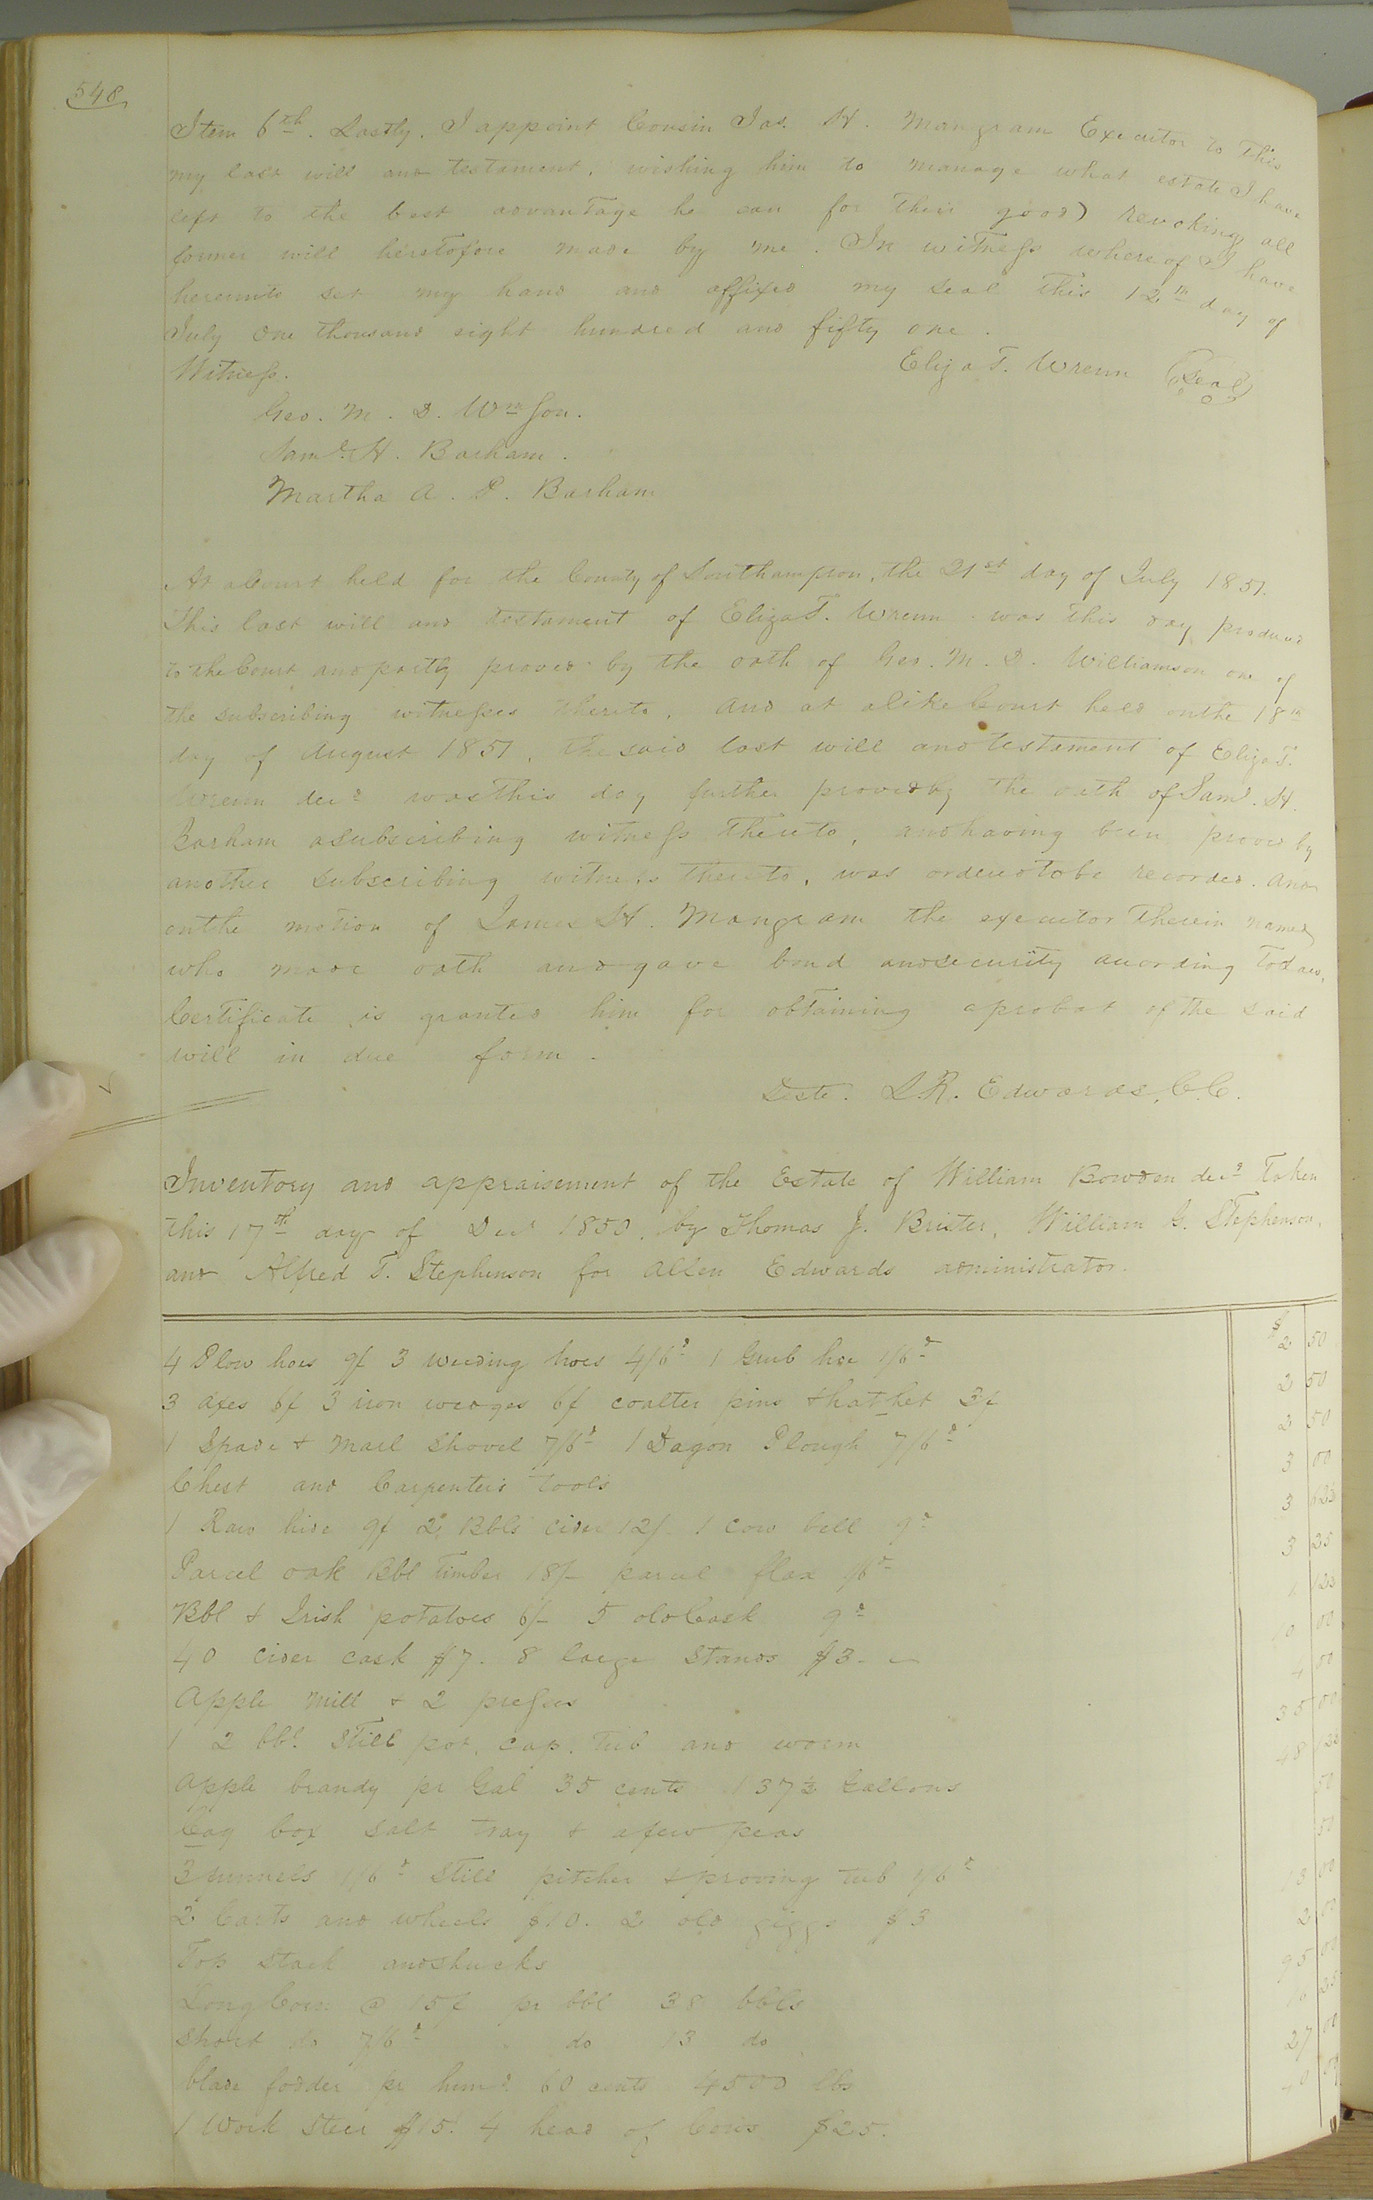 548
Item 6th. Lastly. I appoint Cousin Jas. H. Mangram Executor to this
my last will and testament, wishing him to manage what estate I have
left to the best advantage he can for their good) revoking all
former will heretofore made by me. In witness whereof I have
hereunto set my hand and affixed my seal this 12th day of
July one thousand eight hundred and fifty one.
Witness. Eliza T. Wrenn (Seal)
Geo. M. D. Wmson.
Saml. H. Barham.
Martha A. P. Barham
At a Court held for the County of Southampton, the 21st day of July 1851.
This last will and testament of Eliza T. Wrenn was this day produced
to the Court and partly proved by the oath of Geo. M. D. Williamson one of
the subscribing witnesses thereto, and at a like Court held on the 18th
day of August 1851, the said last will and testament of Eliza T.
Wrenn decd was this day further proved by the oath of Saml. H.
Barham a subscribing witness thereto, and having been proved by
another subscribing witness thereto, was ordered to be recorded. And
on the motion of James H. Mangram the executor therein named
who made oath and gave bond and security according to law,
Certificate is granted him for obtaining a probat of the said
will in due form.
Teste. L. R. Edwards, C.C.
Inventory and appraisement of the Estate of William Bowdon decd taken
this 17th day of Decr 1850, by Thomas J. Brister, William G. Stephenson,
and Alfred T. Stephenson for Allen Edwards administrator.
4 Plow hoes 9/ 3 weeding hoes 4/6d 1 Grub hoe 1/6d $2 50
3 axes 6/ 3 iron wedges 6/ coalter pins & hatchet 3/ 2 50
1 Spade & Marl Shovel 7/6d 1 Dagon Plough 7/6d 2 50
Chest and Carpenter's tools 3 00
1 Raw hide 9/ 2 Bbls cider 12/. 1 cow bell 9d 3 62½
Parcel oak Bbl timber 18/- parcel flax 1/6d 3 25
Bbl & Irish potatoes 6/- 5 old Cask 9d 1 12½
40 cider cask $7. 8 large Stands $3. 10 00
Apple Mill & 2 presses 4 00
1 2 bbl Still pot, cap, tub and worm 35 00
Apple brandy pr Gal 35 cents 137½ Gallons 48 12½
box salt tray & a few peas 50
3 funnels 1/6d Still pitcher & proving tub 1/6d 50
2 Carts and wheels $10. 2 old giggs $3 13 00
Top Stack and shucks 2 00
Long Corn @ 15/ pr bbl 38 bbls 95 00
Short do 7/6d do 13 do 16 25
blade fodder pr hund 60 cents 4500 lbs 27 00
1 Work Steer $15. 4 head of Cows $25.